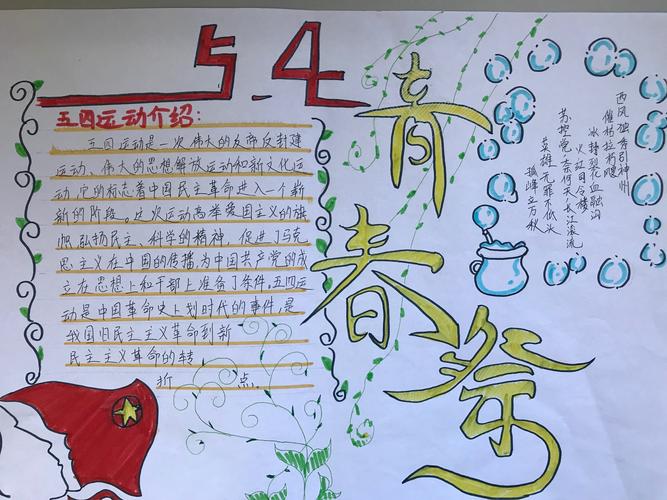 5.4
五四运动介绍:
五四运动是一次伟大的反帝反封建
运动、伟大的思想解放运动和新文化运
动,它的标志着中国民主革命进入一个新
新的阶段。这次运动高举爱国主义的旗
帜,弘扬民主、科学的精神,促进了马克
思主义在中国的传播,为中国共产党的成
立在思想上和干部上准备了条件。五四运
动是中国革命史上划时代的事件,是
我国旧民主主义革命到新
民主主义革命的转
折 点.
青
春
祭
西风独秀引神州
催枯拉朽飕
冰封裂花血融沟
火红日令楼
苏搅党,奈何天,长江滚流
英雄无罪不低头
孤峰立万秋